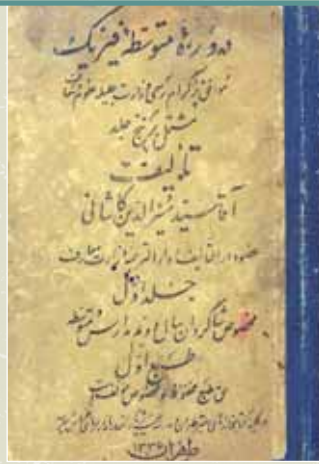 دوره متوسطه فیزیک
موافق پرگرام رسمی وزارت جلیله علوم
مشتمل بر پنج جلد
تألیف
آقا سید منیرالدین کاشانی
عضو دارالتألیف دارالترجمه وزارت معارف
جلد اول
مخصوص شاگردان سال دوم مدارس متوسطه
طبع اول
حق طبع محفوظ و مخصوص مؤلف است
طهران ۱۳۳۶